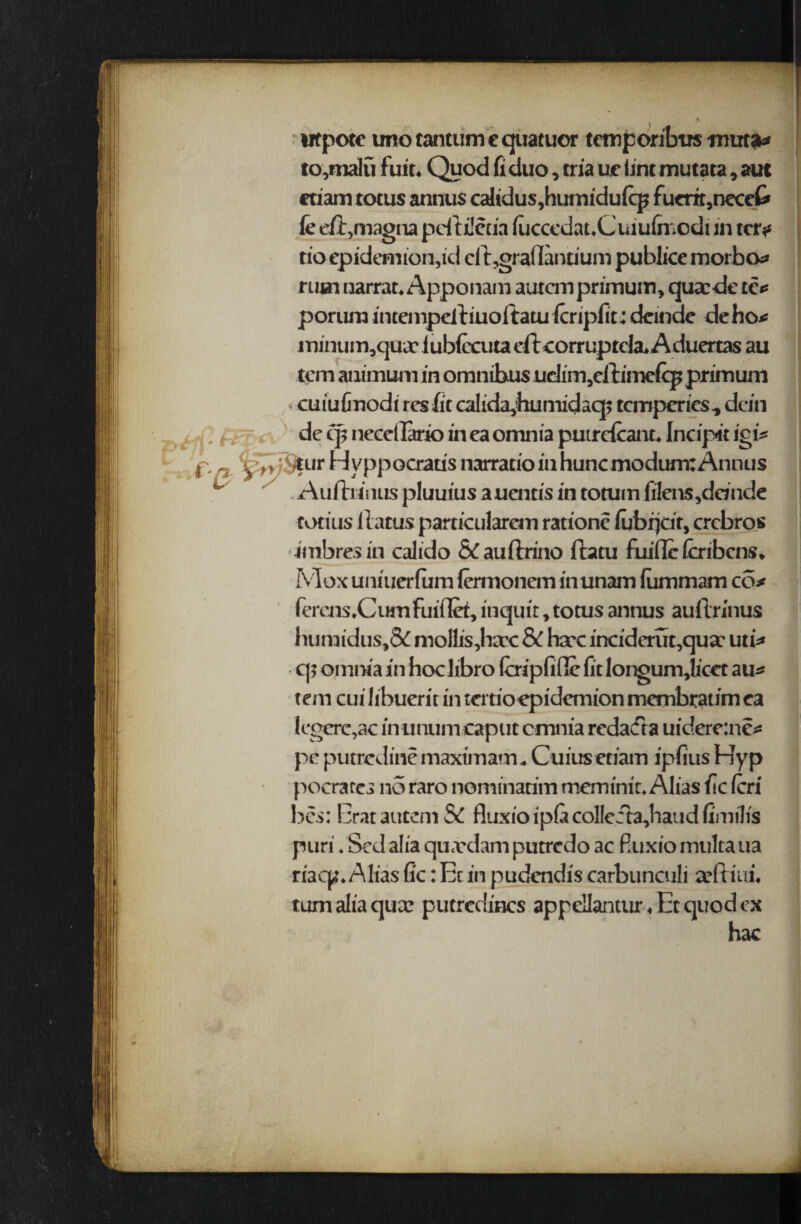 utpote uno tantum e quatuor temporibus muta⸗
to,malū fuit. Quod ſi duo, tria ue ſint mutata, aut
etiam totus annus calidus,humiduſcꝫ fuerit,neceſ⸗
ſe eſt,magna peſtilētia ſuccedat.Cuiuſmodi in ter⸗
tio epidemion,id eſt,graſſantium publice morbo⸗
rum narrat.Apponam autem primum, quæ de tē⸗
porum intempeſtiuo ſtatu ſcripſit: deinde de ho⸗
minum,quæ ſubſecuta eſt corruptela.Aduertas au
tem animum in omnibus uelim,eſtimeſcꝫ primum
cuiuſmodi res ſit calida,humidacꝫ temperies, dein
de cꝫ neceſſario in ea omnia putreſcant. Incipit igi⸗
tur Hyppocratis narratio in hunc modum: Annus
Auſtrinus pluuius a uentis in totum ſilens,deinde
totius ſtatus particularem rationē ſubijcit, crebros
imbres in calido & auſtrino ſtatu fuiſſe ſcribens.
Mox uniuerſum ſermonem in unam ſummam cō⸗
ferens.Cum fuiſſet, inquit, totus annus auſtrinus
humidus,& mollis,hæc & hæc inciderūt,quæ uti⸗
cꝫ omnia in hoc libro ſcripſiſſe ſit longum,licet au⸗
tem cui libuerit in tertio epidemion membratim ea
legere,ac in unum caput omnia redacta uidere:nē⸗
pe putredinē maximam. Cuius etiam ipſius Hyp
pocrates nō raro nominatim meminit. Alias ſic ſcri
bēs: Erat autem & fluxio ipſa collecta,haud ſimilis
puri. Sed alia quædam putredo ac fluxio multa ua
riacꝫ. Alias ſic: Et in pudendis carbunculi æſtiui.
tum alia quæ putredines appellantur. Et quod ex
hac